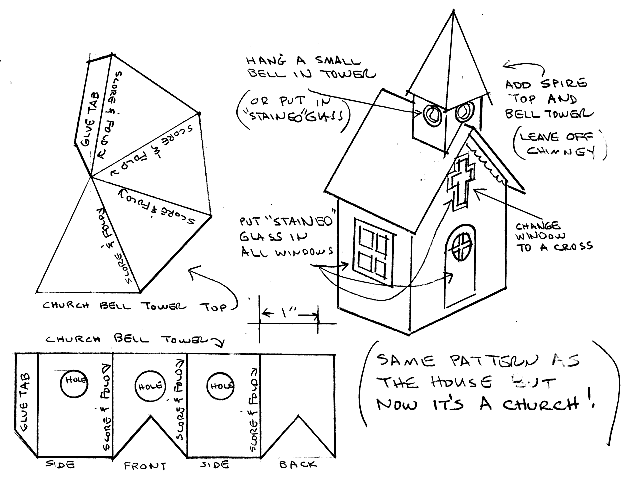 GLUE TAB
SCORE & FOLD
SCORE & FOLD
SCORE & FOLD
SCORE & FOLD
CHURCH BELL TOWER TOP
HANG A SMALL
BELL IN TOWER
(OR PUT IN
"STAINED" GLASS)
ADD SPIRE
TOP AND
BELL TOWER
(LEAVE OFF
CHIMNEY)
PUT "STAINED"
GLASS IN
ALL WINDOWS
CHANGE
WINDOW
TO A CROSS
1"
CHURCH BELL TOWER
GLUE TAB
HOLE
SCORE & FOLD
HOLE
SCORE & FOLD
HOLE
SCORE & FOLD
SIDE
FRONT
SIDE
BACK
(SAME PATTERN AS
THE HOUSE BUT
NOW IT'S A CHURCH!)